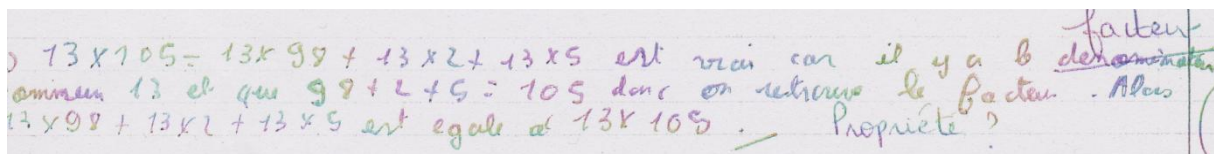 facteur
) 13 x 105 = 13 x 98 + 13 x 2 + 13 x 5 est vrai car il y a le denominateur
ommun 13 et que 98 + 2 + 5 = 105 donc on retrouve le facteur. Alors
13 x 98 + 13 x 2 + 13 x 5 est egale a 13 x 105. Propriété ?